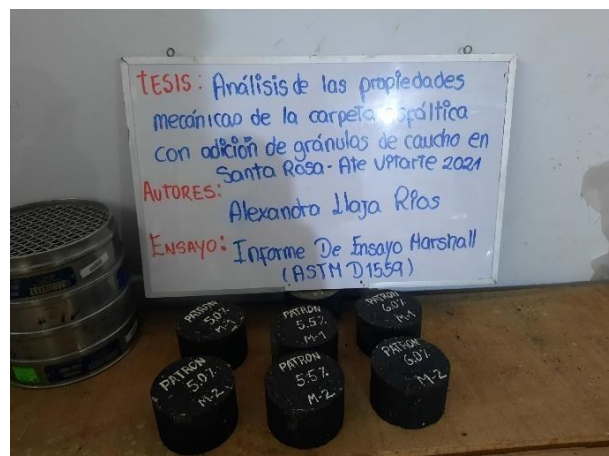 TESIS: Análisis de las propiedades
mecánicas de la carpeta asfáltica
con adición de gránulas de caucho en
Santa Rosa - Ate Vitarte 2021
AUTORES:
Alexandra Llaja Rios
ENSAYO: Informe De Ensayo Marshall
(ASTM D1559)
PATRON
5.0%
M-1
PATRON
5.5%
M-1
PATRON
6.0%
M-1
PATRON
5.0%
M-2
PATRON
5.5%
M-2
PATRON
6.0%
M-2